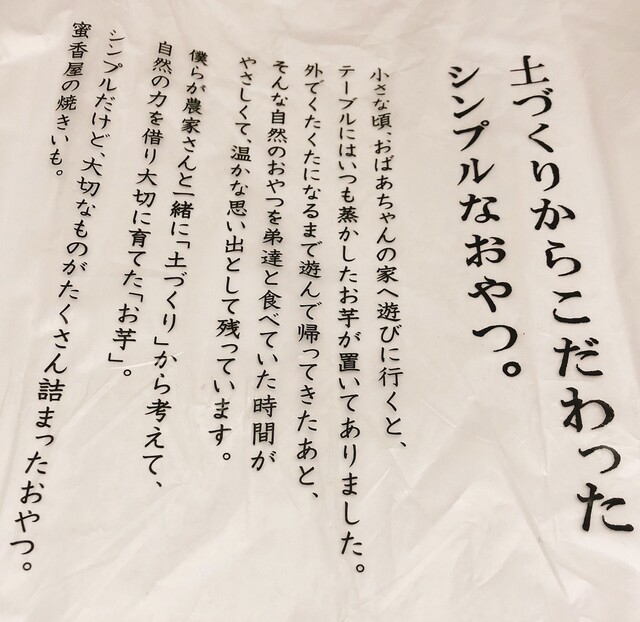 土づくりからこだわった
シンプルなおやつ。
小さな頃、おばあちゃんの家へ遊びに行くと、
テーブルにはいつも蒸かしたお芋が置いてありました。
外でくたくたになるまで遊んで帰ってきたあと、
そんな自然のおやつを弟達と食べていた時間が
やさしくて、温かな思い出として残っています。
僕らが農家さんと一緒に「土づくり」から考えて、
自然の力を借り大切に育てた「お芋」。
シンプルだけど、大切なものがたくさん詰まったおやつ。
蜜香屋の焼きいも。